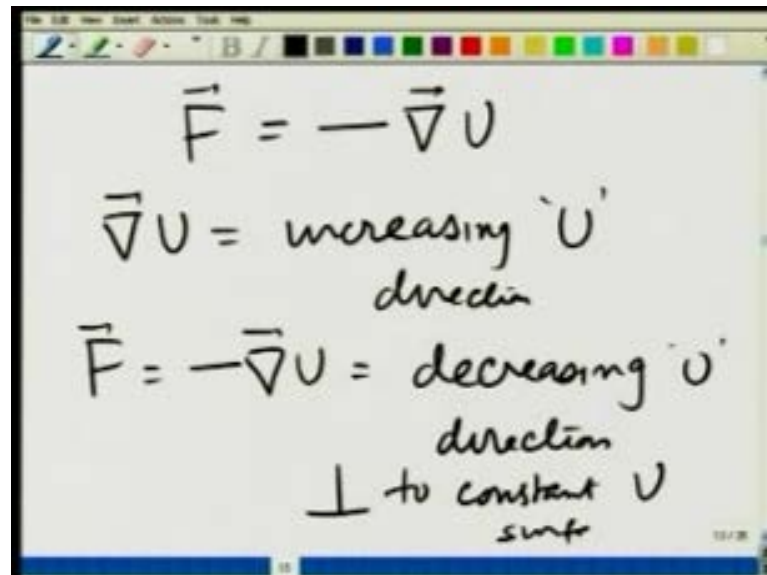 File Edit View Insert Actions Tools Help
B I
F⃗ = — ∇⃗ U
∇⃗ U = increasing 'U'
direction
F⃗ = — ∇⃗ U = decreasing 'U'
direction
⊥ to constant U